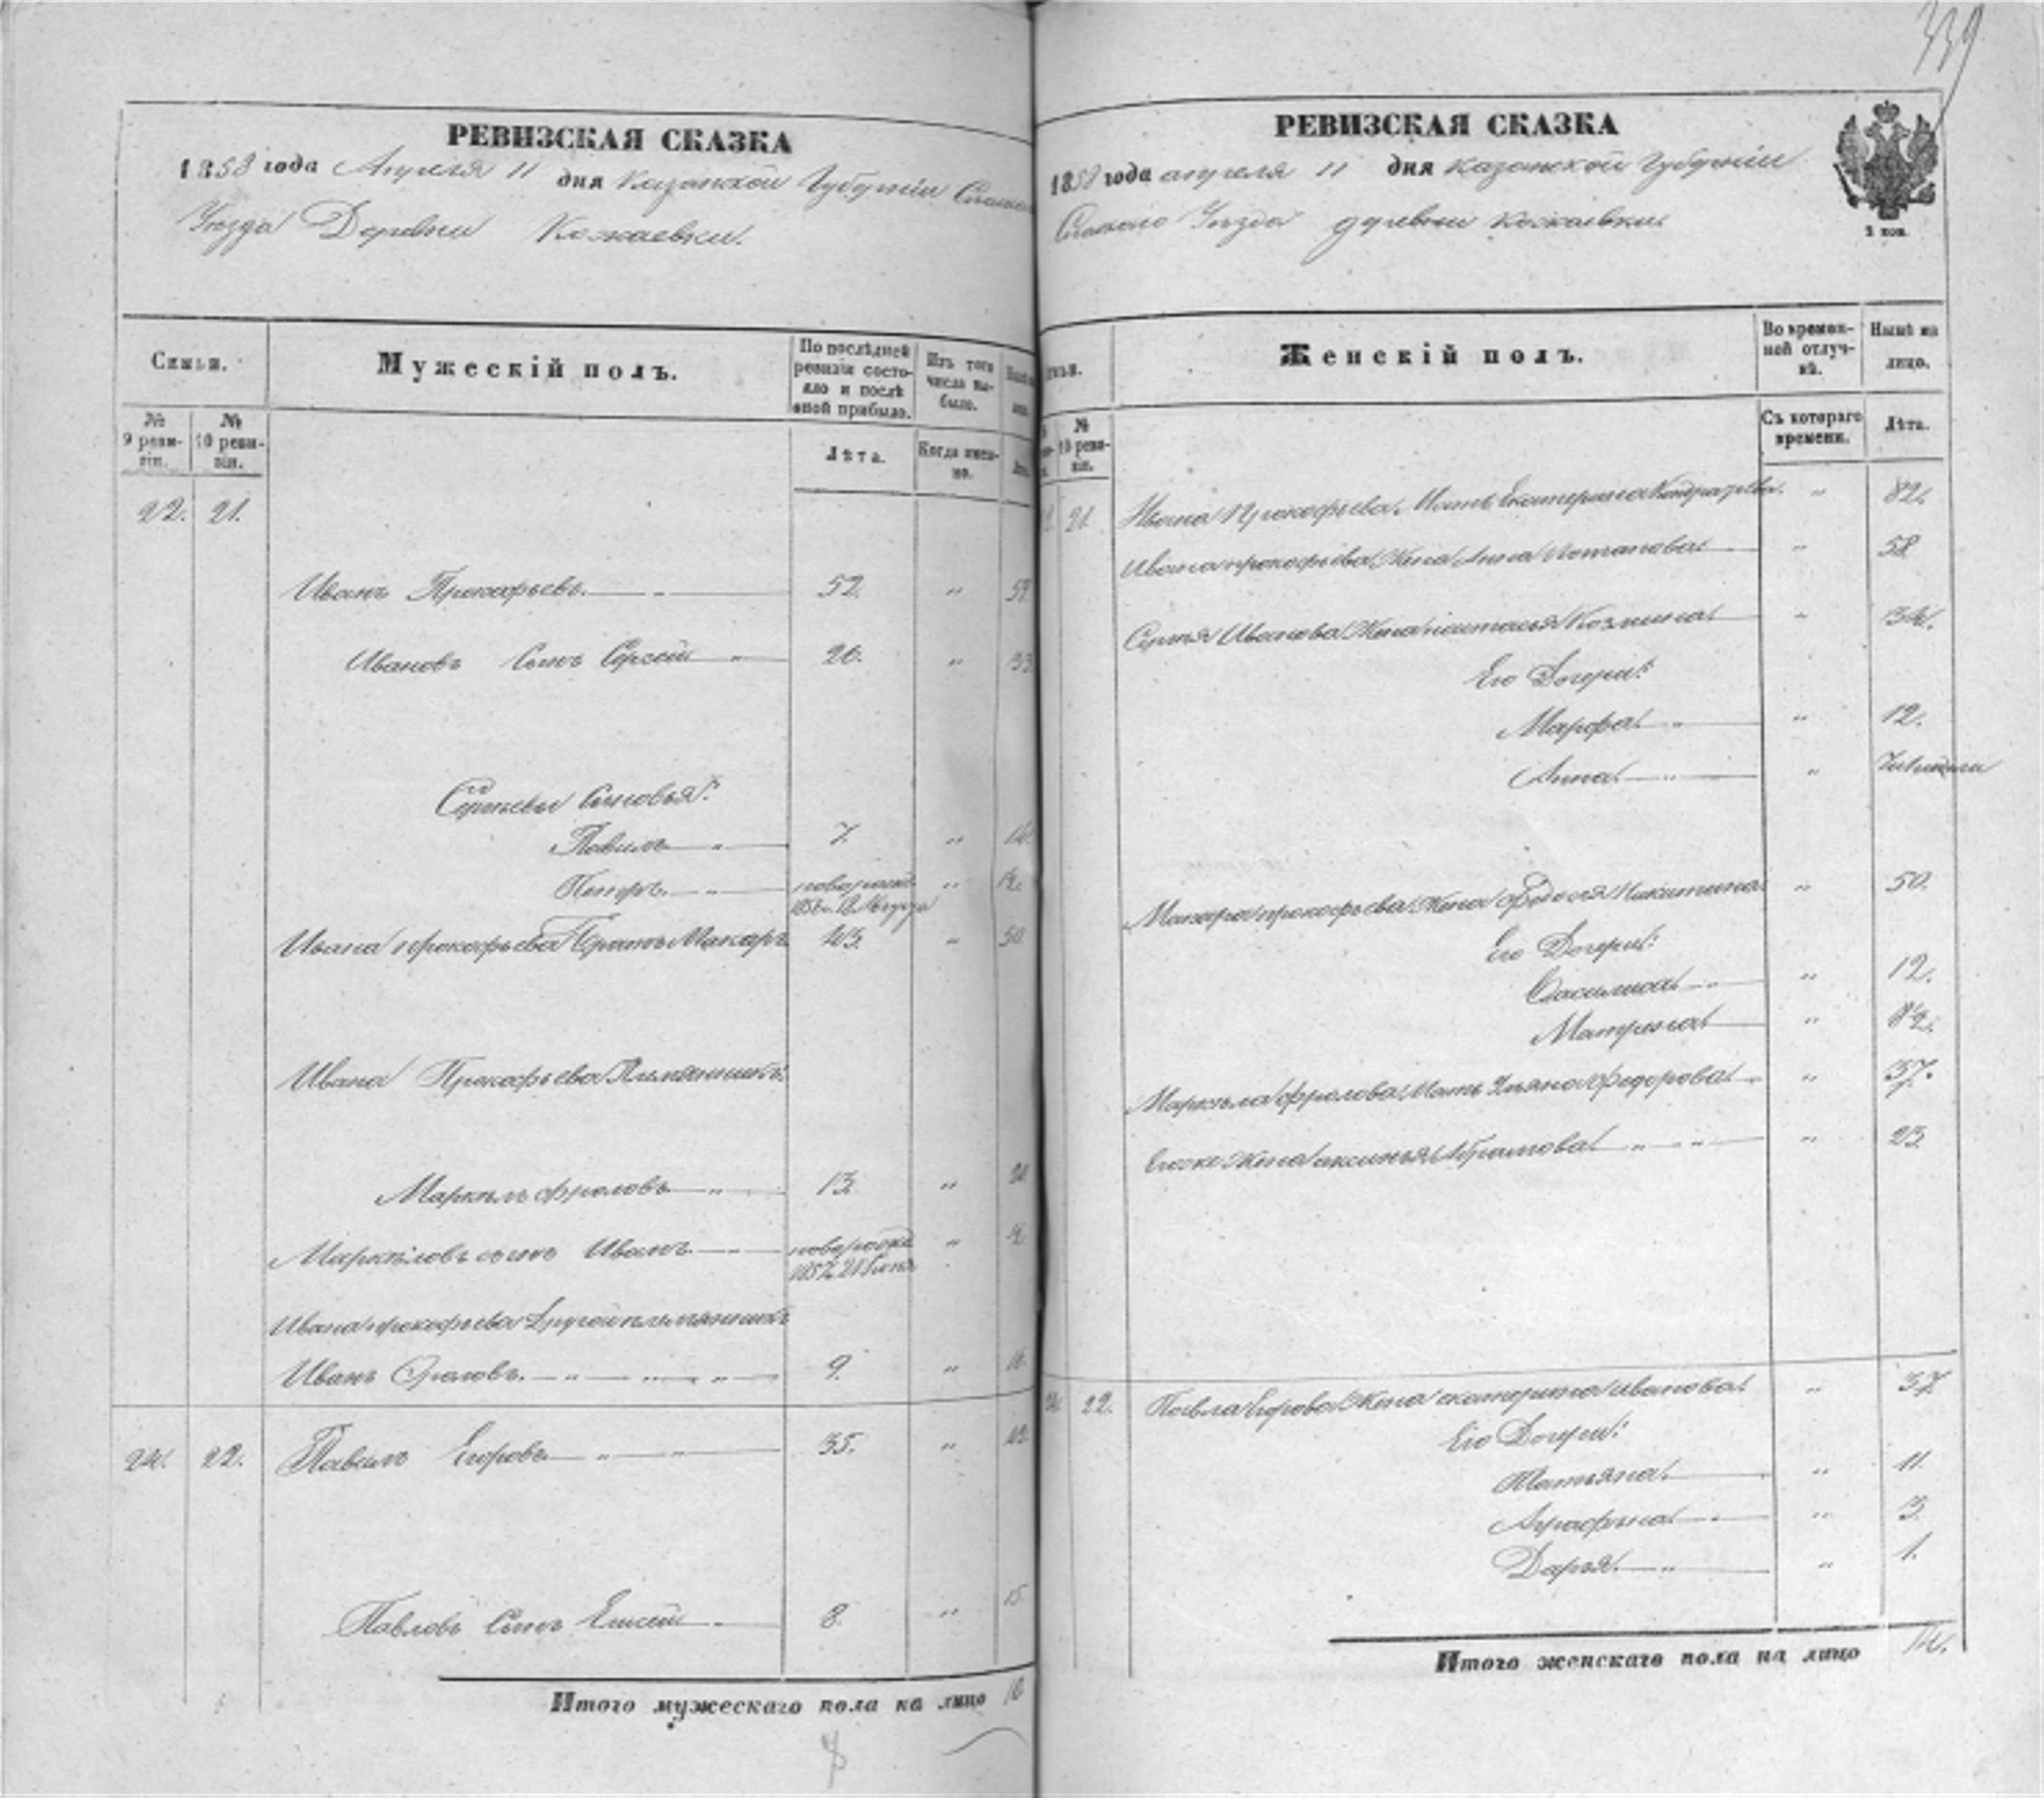 339
РЕВИЗСКАЯ СКАЗКА
1858 года Апреля 11 дня Казанской Губернiи
Уезда Деревни Кожаевки.
Семьи.
Мужескій полъ.
По послѣдней ревизіи состояло и послѣ оной прибыло.
Изъ того числа выбыло.
№ 9 ревизіи.
№ 10 ревизіи.
Лѣта.
Когда именно.
22. 21.
Иванъ Прокофьевъ. 52. "
Ивановъ Сынъ Сергей " 26. " 33
Сергѣевы Сыновья:
Павелъ " 7. " 14.
Петръ. " "
Ивана прокофьева Братъ Макаръ 43. " 50.
Ивана Прокофьева Племянникъ:
Маркелъ фроловъ " 13. "
Маркѣловъ сынъ Иванъ "
Ивана прокофьева Другой племянникъ
Иванъ Фроловъ. 9. "
24. 22. Павелъ Егоровъ 35. "
Павловъ Сынъ Елисей 8. " 15.
Итого мужескаго пола на лицо
РЕВИЗСКАЯ СКАЗКА
1858 года апреля 11 дня Казанской Губернiи
Спаскаго Уезда деревни кожаевки.
2 коп.
Женскій полъ.
Во временной отлучкѣ.
Нынѣ на лицо.
№ 10 ревизіи.
Съ котораго времени.
Лѣта.
21. Ивана Прокофьева Мать Екатерина Кондратьева. " 82.
Ивана прокофьева Жена Анна Потапова " 58
Сергея Иванова Жена настасья Козмина " 34.
Его Дочери:
Марфа " 12.
Анна "
Макара прокофьева Жена Федосья Никитина " 50.
Его Дочери:
Василиса " 12.
Матрена "
Маркела фролова Мать Ульяна Федорова " 57.
Его же Жена аксинья Абрамова " 23.
24. 22. Павла Егорова Жена екатерина иванова " 37
Его Дочери:
Татьяна. " 11.
Аграфена " 3.
Дарья. " 1.
Итого женскаго пола на лицо 14.